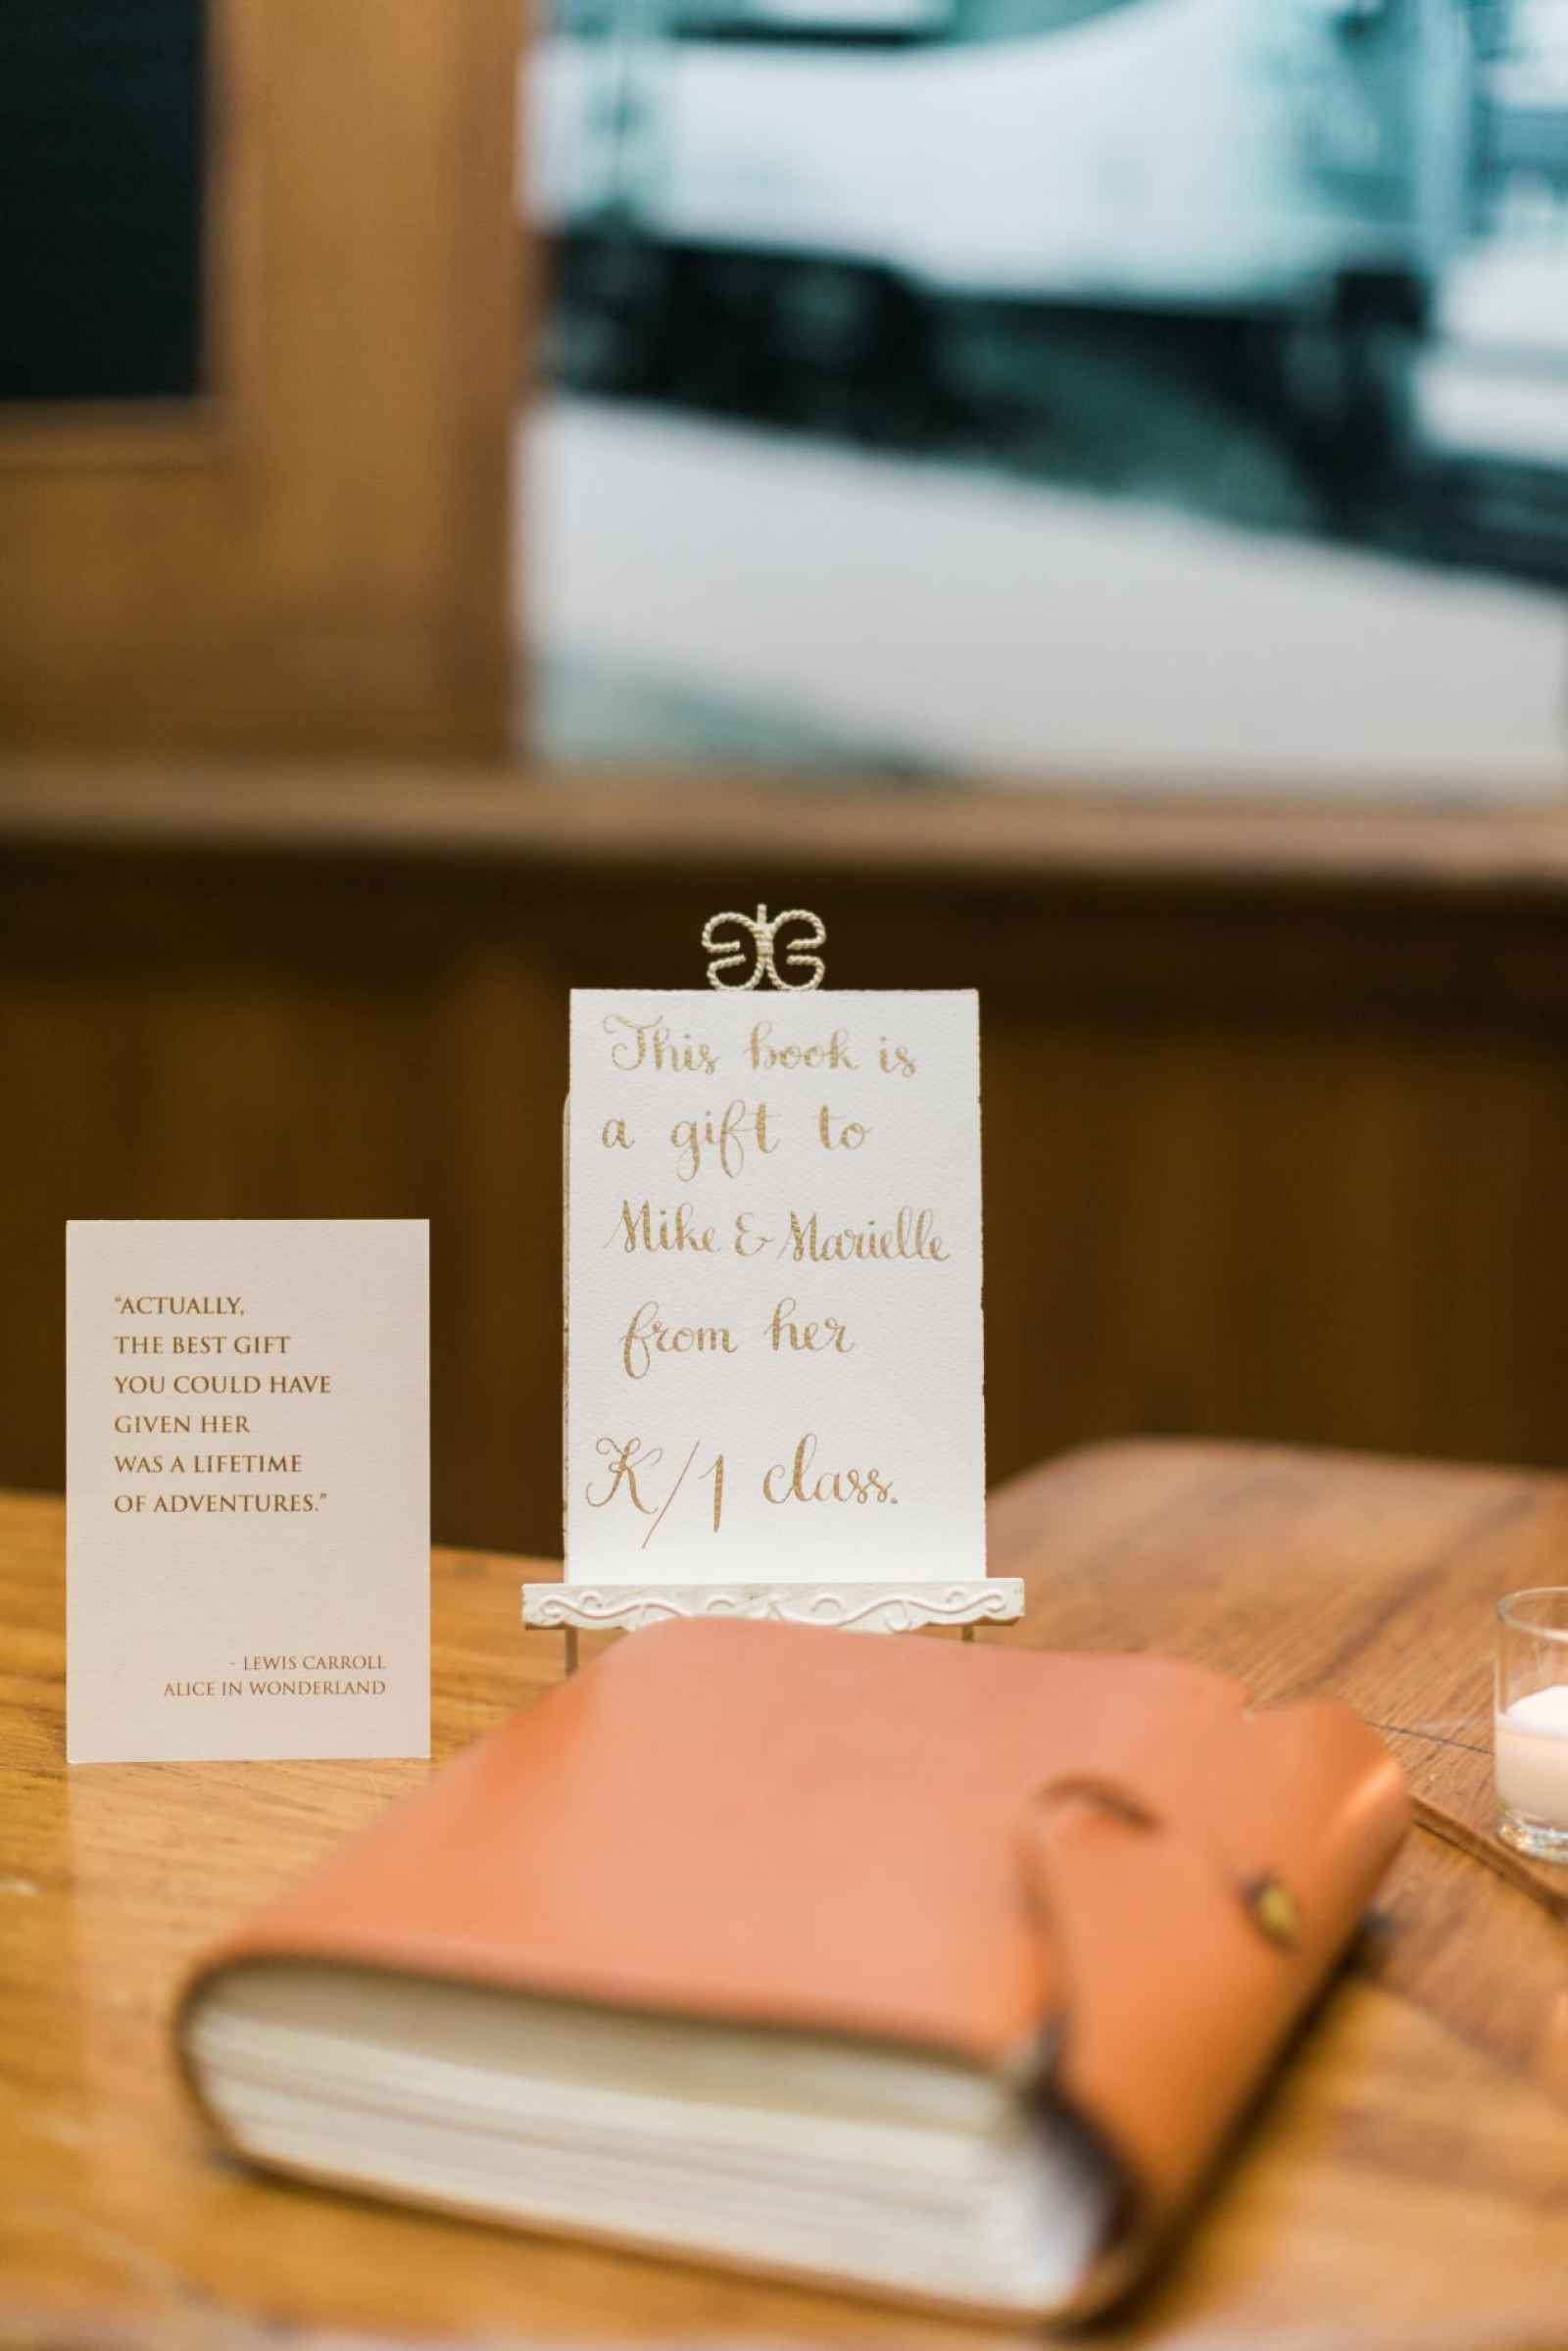 "ACTUALLY,
THE BEST GIFT
YOU COULD HAVE
GIVEN HER
WAS A LIFETIME
OF ADVENTURES."
- LEWIS CARROLL
ALICE IN WONDERLAND
This book is
a gift to
Mike & Marielle
from her
K/1 class.